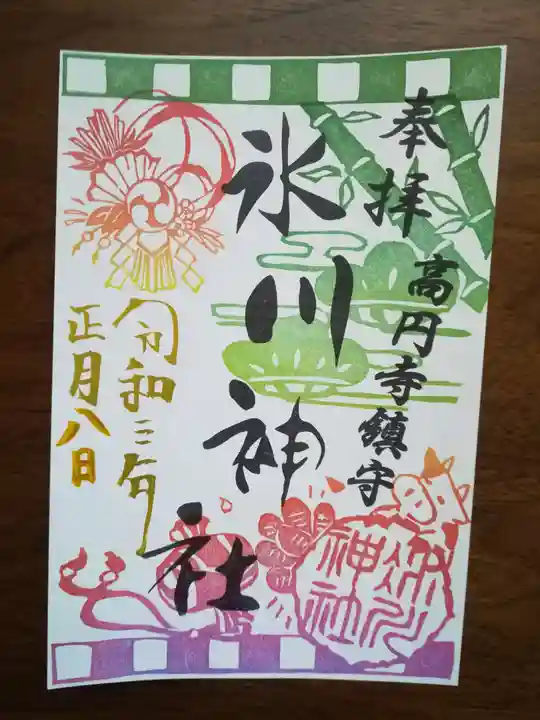 奉拝
高円寺鎮守
氷川神社
令和三年
正月八日
氷川
神社